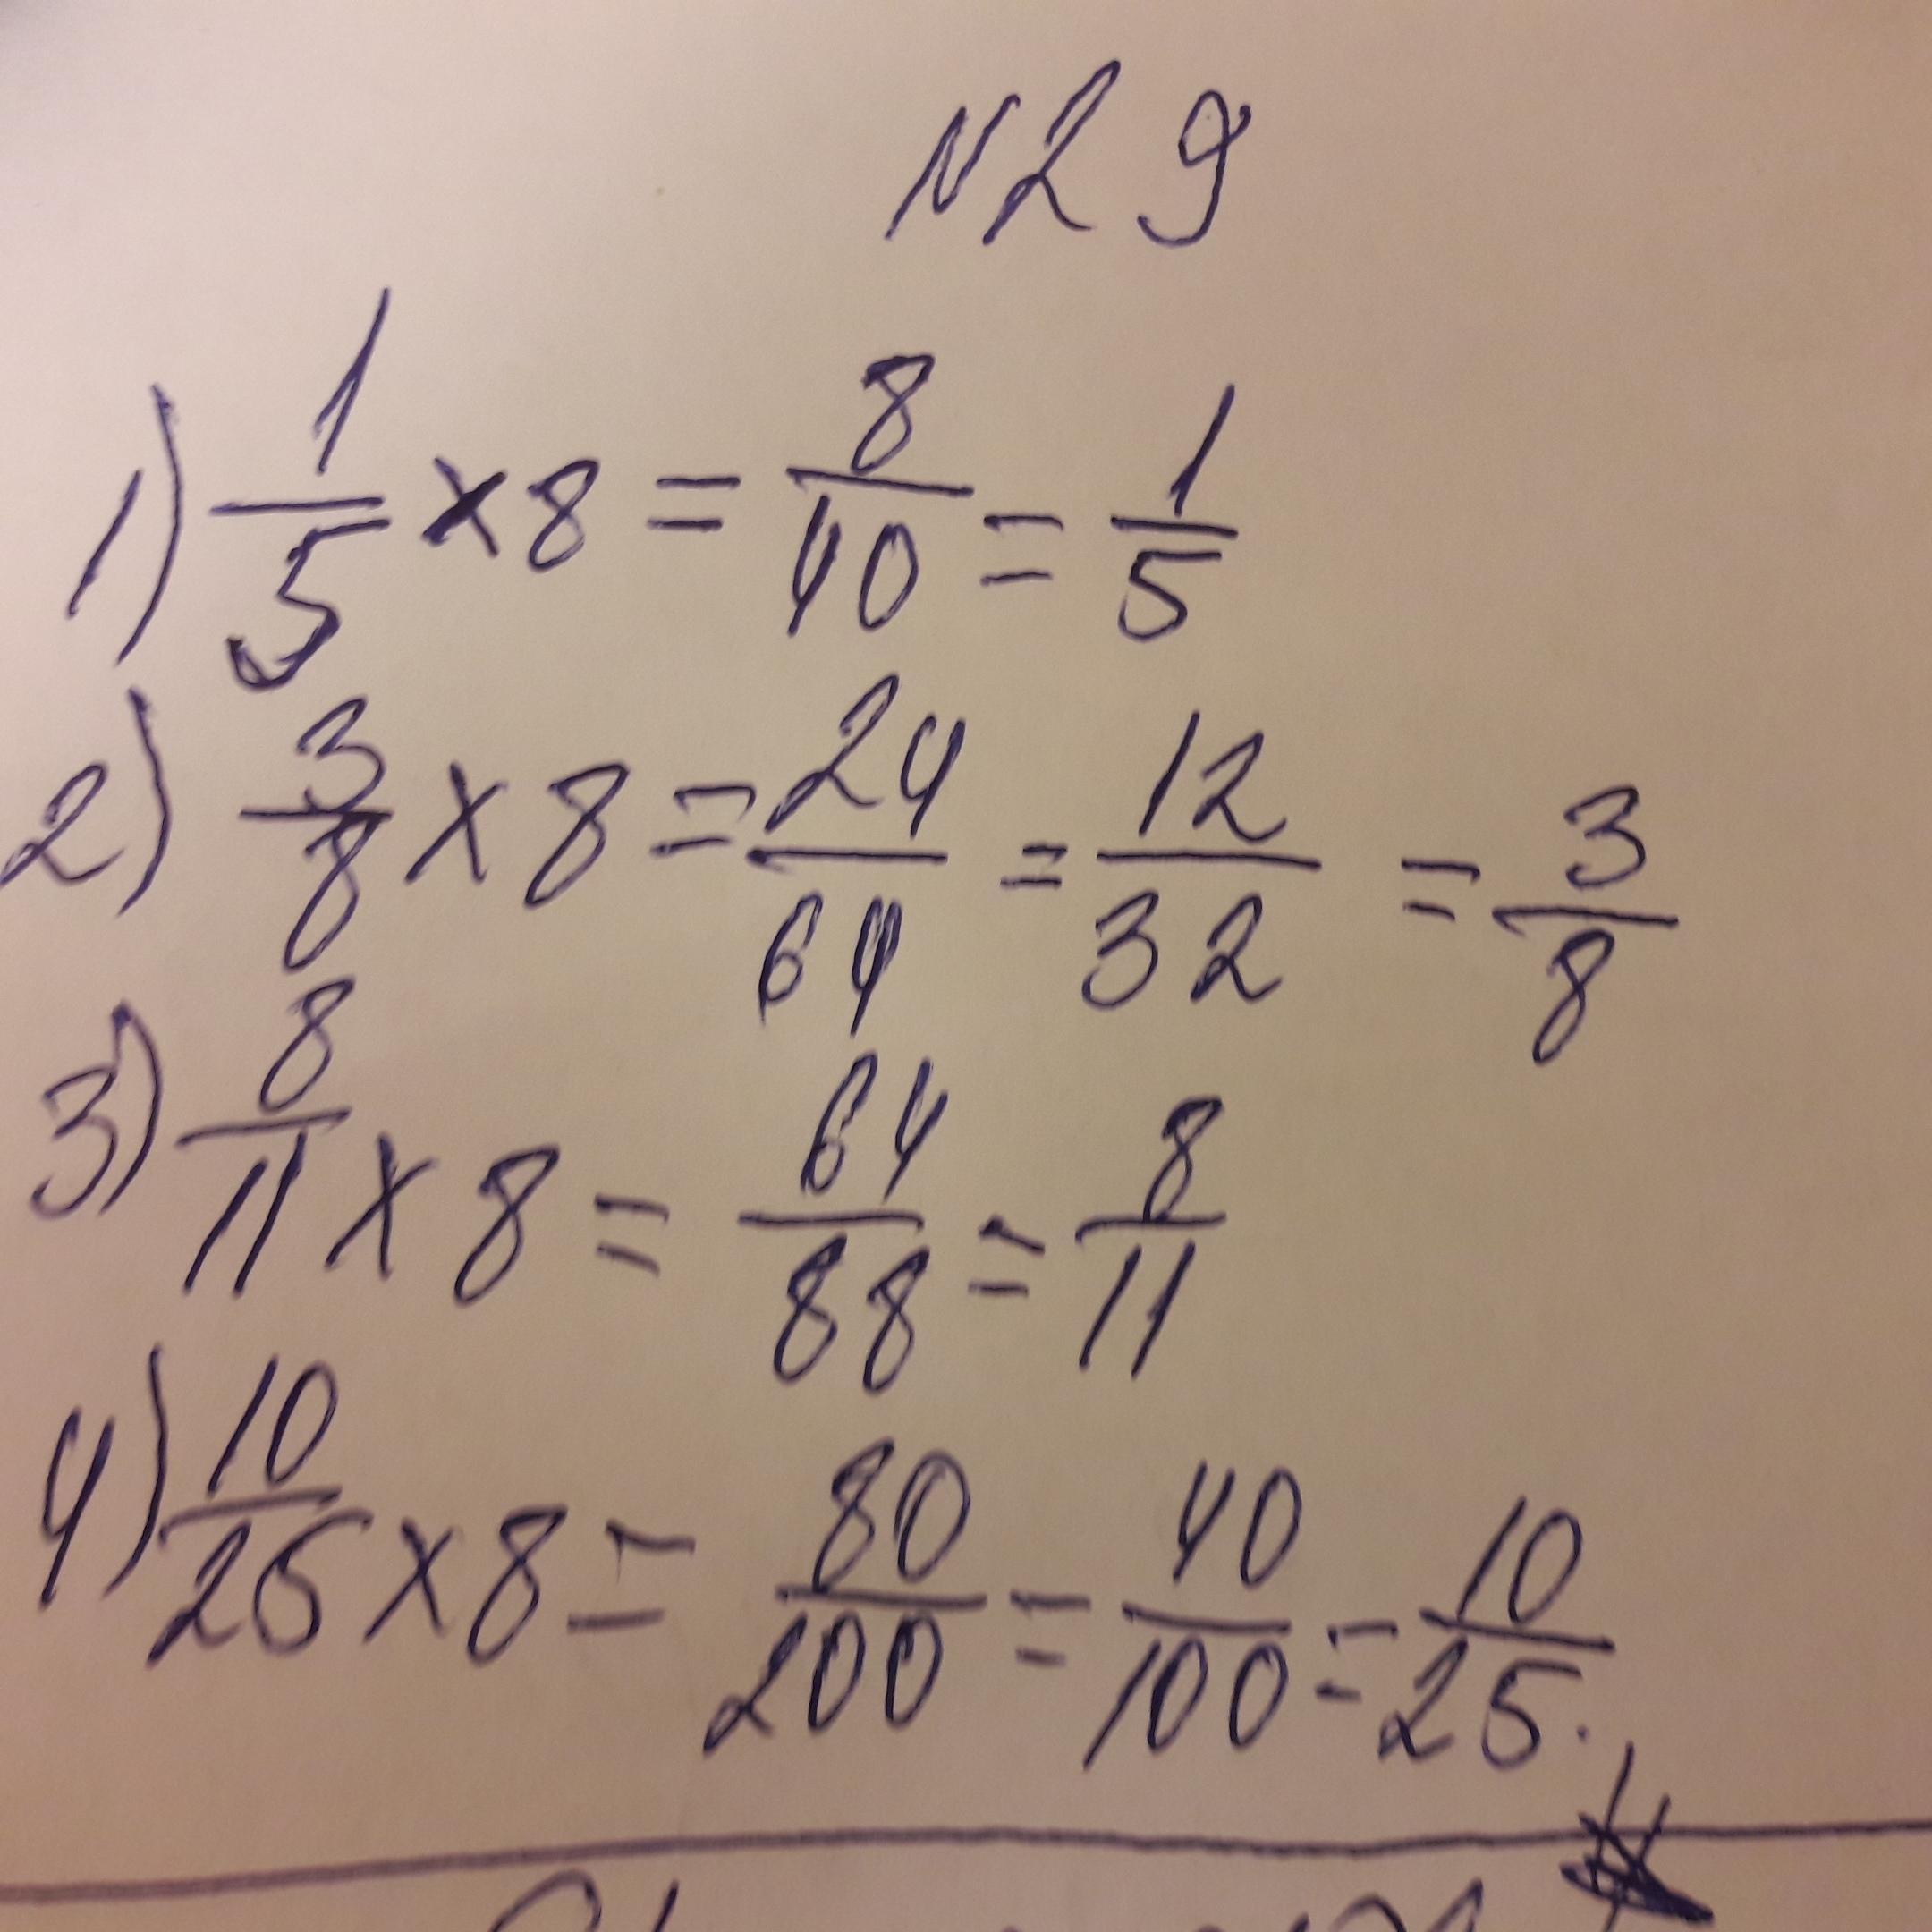 N29
1) 1/5 × 8 = 8/40 = 1/5
2) 3/8 × 8 = 24/64 = 12/32 = 3/8
3) 8/11 × 8 = 64/88 = 8/11
4) 10/25 × 8 = 80/200 = 40/100 = 10/25.